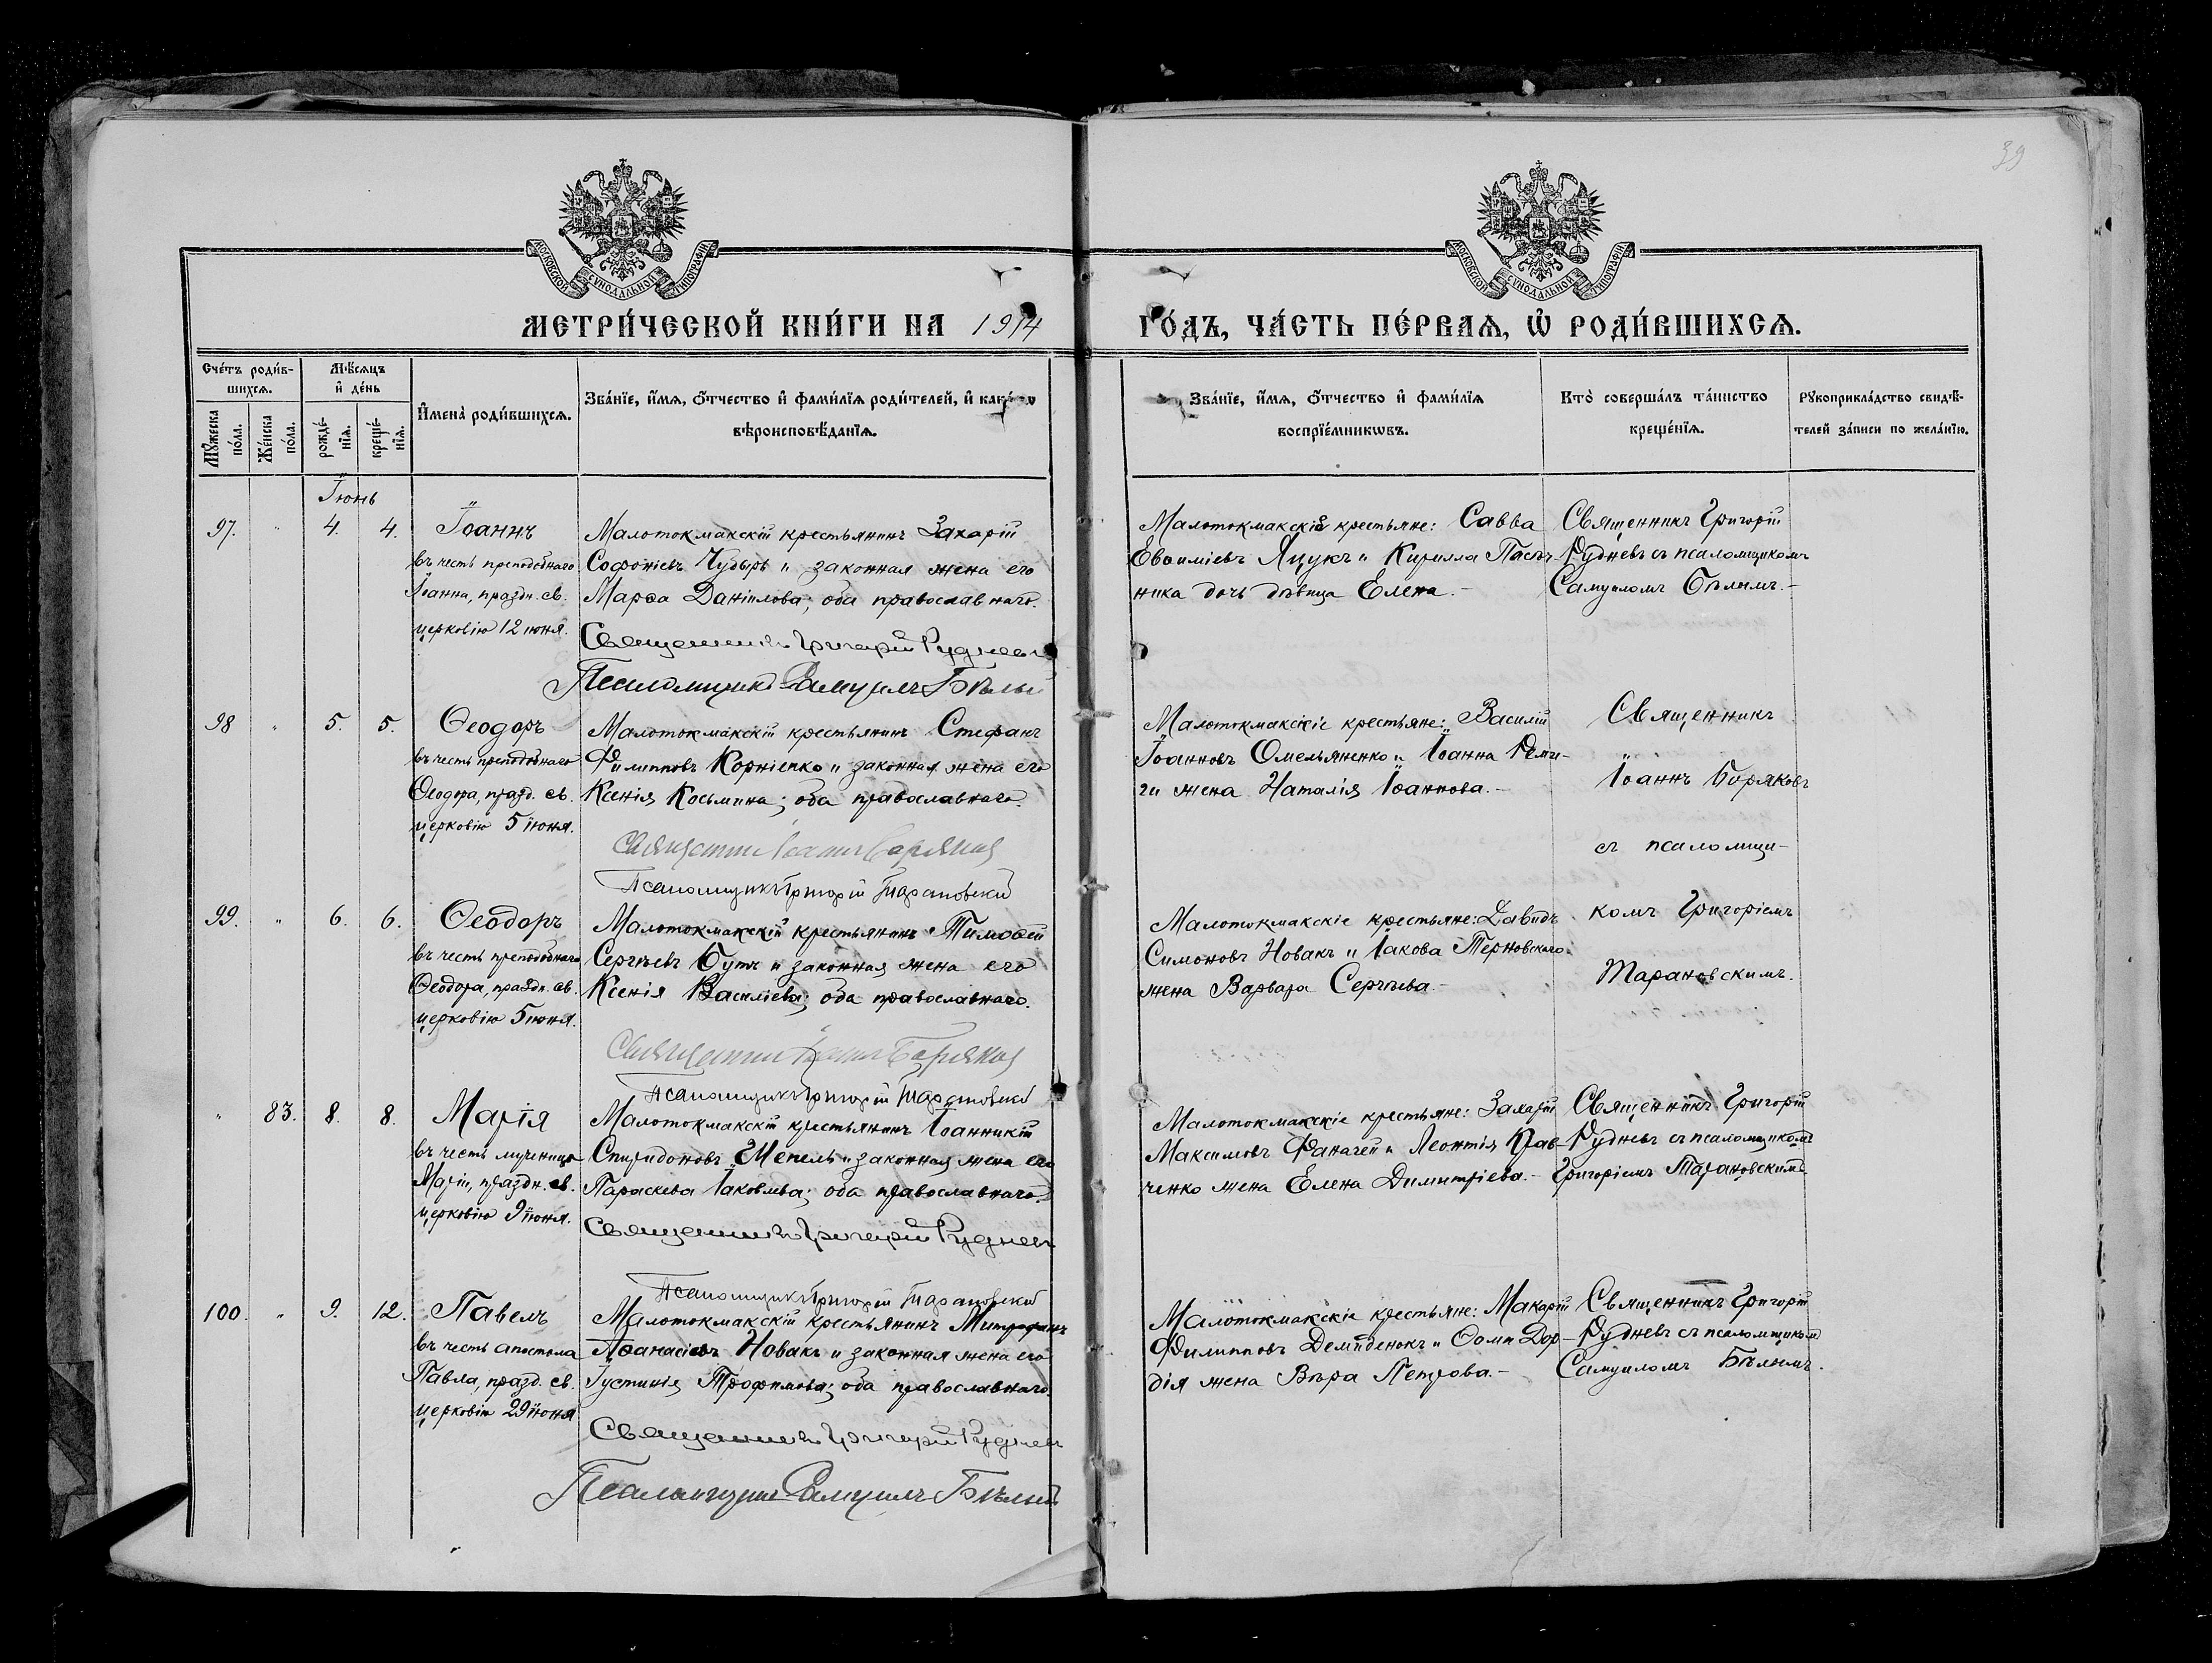 39
МОСКОВСКОЙ СѴНОДАЛЬНОЙ ТИПОГРАФІИ
МОСКОВСКОЙ СѴНОДАЛЬНОЙ ТИПОГРАФІИ
МЕТРИ́ЧЕСКОЙ КНИ́ГИ НА 1914
ГО́ДЪ, ЧА́СТЬ ПЕ́РВАѦ, Ѽ РОДИ́ВШИХСѦ.
Сче́тъ роди́в-
шихсѧ.
Мꙋ́жеска
по́ла.
Же́нска
по́ла.
Мѣ́сѧцъ
и҆ де́нь
рожде́-
нїѧ.
креще́-
нїѧ.
И҆мена̀ роди́вшихсѧ.
Зва́нїе, и҆́мѧ, о҆́тчество и҆ фами́лїѧ роди́телей, и҆ како́гѡ
вѣроисповѣ́данїѧ.
Зва́нїе, и҆́мѧ, о҆́тчество и҆ фами́лїѧ
воспрїе́мникѡвъ.
Кто̀ соверша́лъ та́инство
креще́нїѧ.
Рꙋкоприкла́дство свидѣ́-
телей за́писи по жела́нїю.
Іюнь
97. " 4. 4.
Іоаннъ
въ честь преподобнаго
Іоанна, праздн. св.
церковію 12 июня.
Малотокмакскій крестьянинъ Захарій
Софоніевъ Чудырь и законная жена его
Марѳа Даніилова; оба православнаго.
Священникъ Григорій Рудневъ
Псаломщикъ Самуилъ Бѣлый
Малотокмакскіе крестьяне: Савва
Евѳиміевъ Яцукъ и Кирилла Пасѣч-
ника дочь дѣвица Елена.-
Священникъ Григорій
Рудневъ съ псаломщикомъ
Самуиломъ Бѣлымъ.-
98 " 5. 5.
Ѳеодоръ
въ честь преподобнаго
Ѳеодора, празд. св.
церковію 5 іюня.
Малотокмакскій крестьянинъ Стефанъ
Филипповъ Корніенко и законная жена его
Ксенія Косьмина; оба православнаго.
Священникъ Іоаннъ Боряковъ
Псаломщикъ Григорій Тарановскій
Малотокмакскіе крестьяне: Василій
Іоанновъ Омельяненко и Іоанна Реми-
ги жена Наталія Іоаннова.-
Священникъ
Іоаннъ Боряковъ
съ псаломщи-
99. " 6. 6.
Ѳеодоръ
въ честь преподобнаго
Ѳеодора, праздн. св.
церковію 5 июня.
Малотокмакскій крестьянинъ Тимоѳей
Сергѣевъ Бутъ и законная жена его
Ксенія Василіева; оба православнаго.
Священникъ Іоаннъ Боряковъ
Псаломщикъ Григорій Тарановскій
Малотокмакскіе крестьяне: Давидъ
Симоновъ Новакъ и Іакова Терновскаго
жена Варвара Сергѣева.-
комъ Григоріемъ
Тарановскимъ.
" 83. 8. 8.
Марія
въ честь мученицы
Маріи, праздн. св.
церковію 9 іюня.
Малотокмакскій крестьянинъ Іоанникій
Спиридоновъ Шепель и законная жена его
Параскева Іаковлева; оба православнаго.
Священникъ Григорій Рудневъ
Псаломщикъ Григорій Тарановскій
Малотокмакскіе крестьяне: Захарій
Максимовъ Фаначей и Леонтія Крав-
ченко жена Елена Димитріева.-
Священникъ Григорій
Рудневъ съ псаломщикомъ
Григоріемъ Тарановскимъ.
100. " 9. 12.
Павелъ
въ честь апостола
Павла, празд. св.
церковію 29 іюня
Малотокмакскій крестьянинъ Митрофанъ
Аѳанасіевъ Новакъ и законная жена его
Іустинія Трофимова; оба православнаго.
Священникъ Григорій Рудневъ
Псаломщикъ Самуилъ Бѣлый
Малотокмакскіе крестьяне: Макарій
Филипповъ Демиденокъ и Ѳомы Дор-
дія жена Вѣра Петрова.-
Священникъ Григорій
Рудневъ съ псаломщикомъ
Самуиломъ Бѣлымъ.